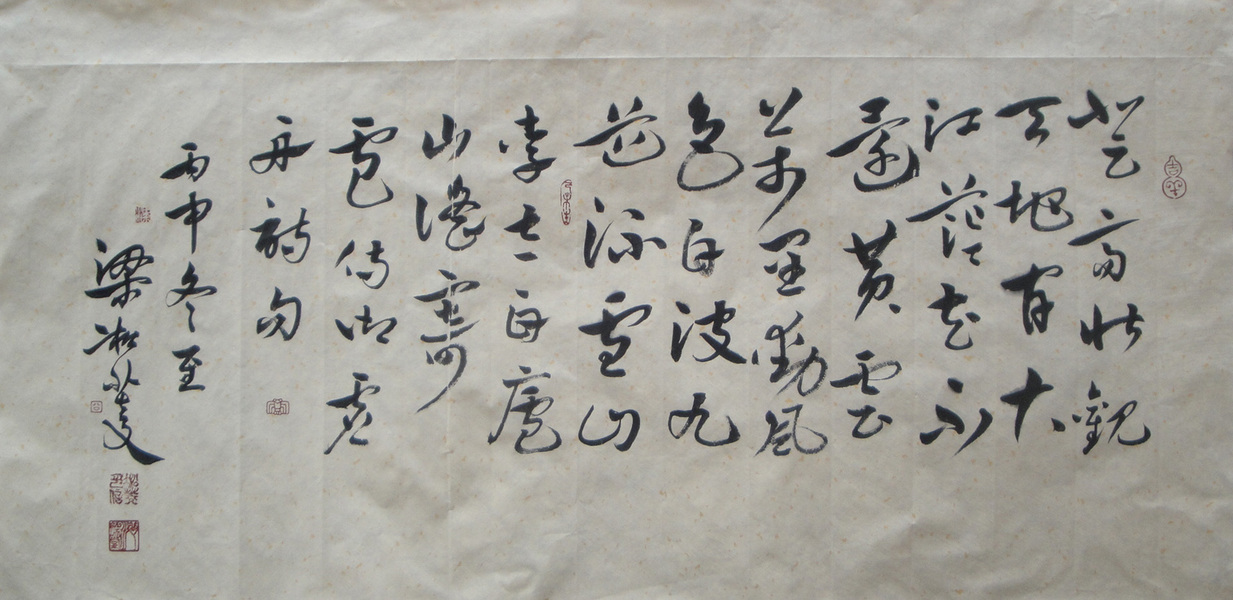 登高壯觀
天地間大
江茫茫去不
還黃雲
萬里動風
色白波九
道流雪山
李太白廬
山謠寄
盧侍御虛
舟詩句
丙申冬至
梁